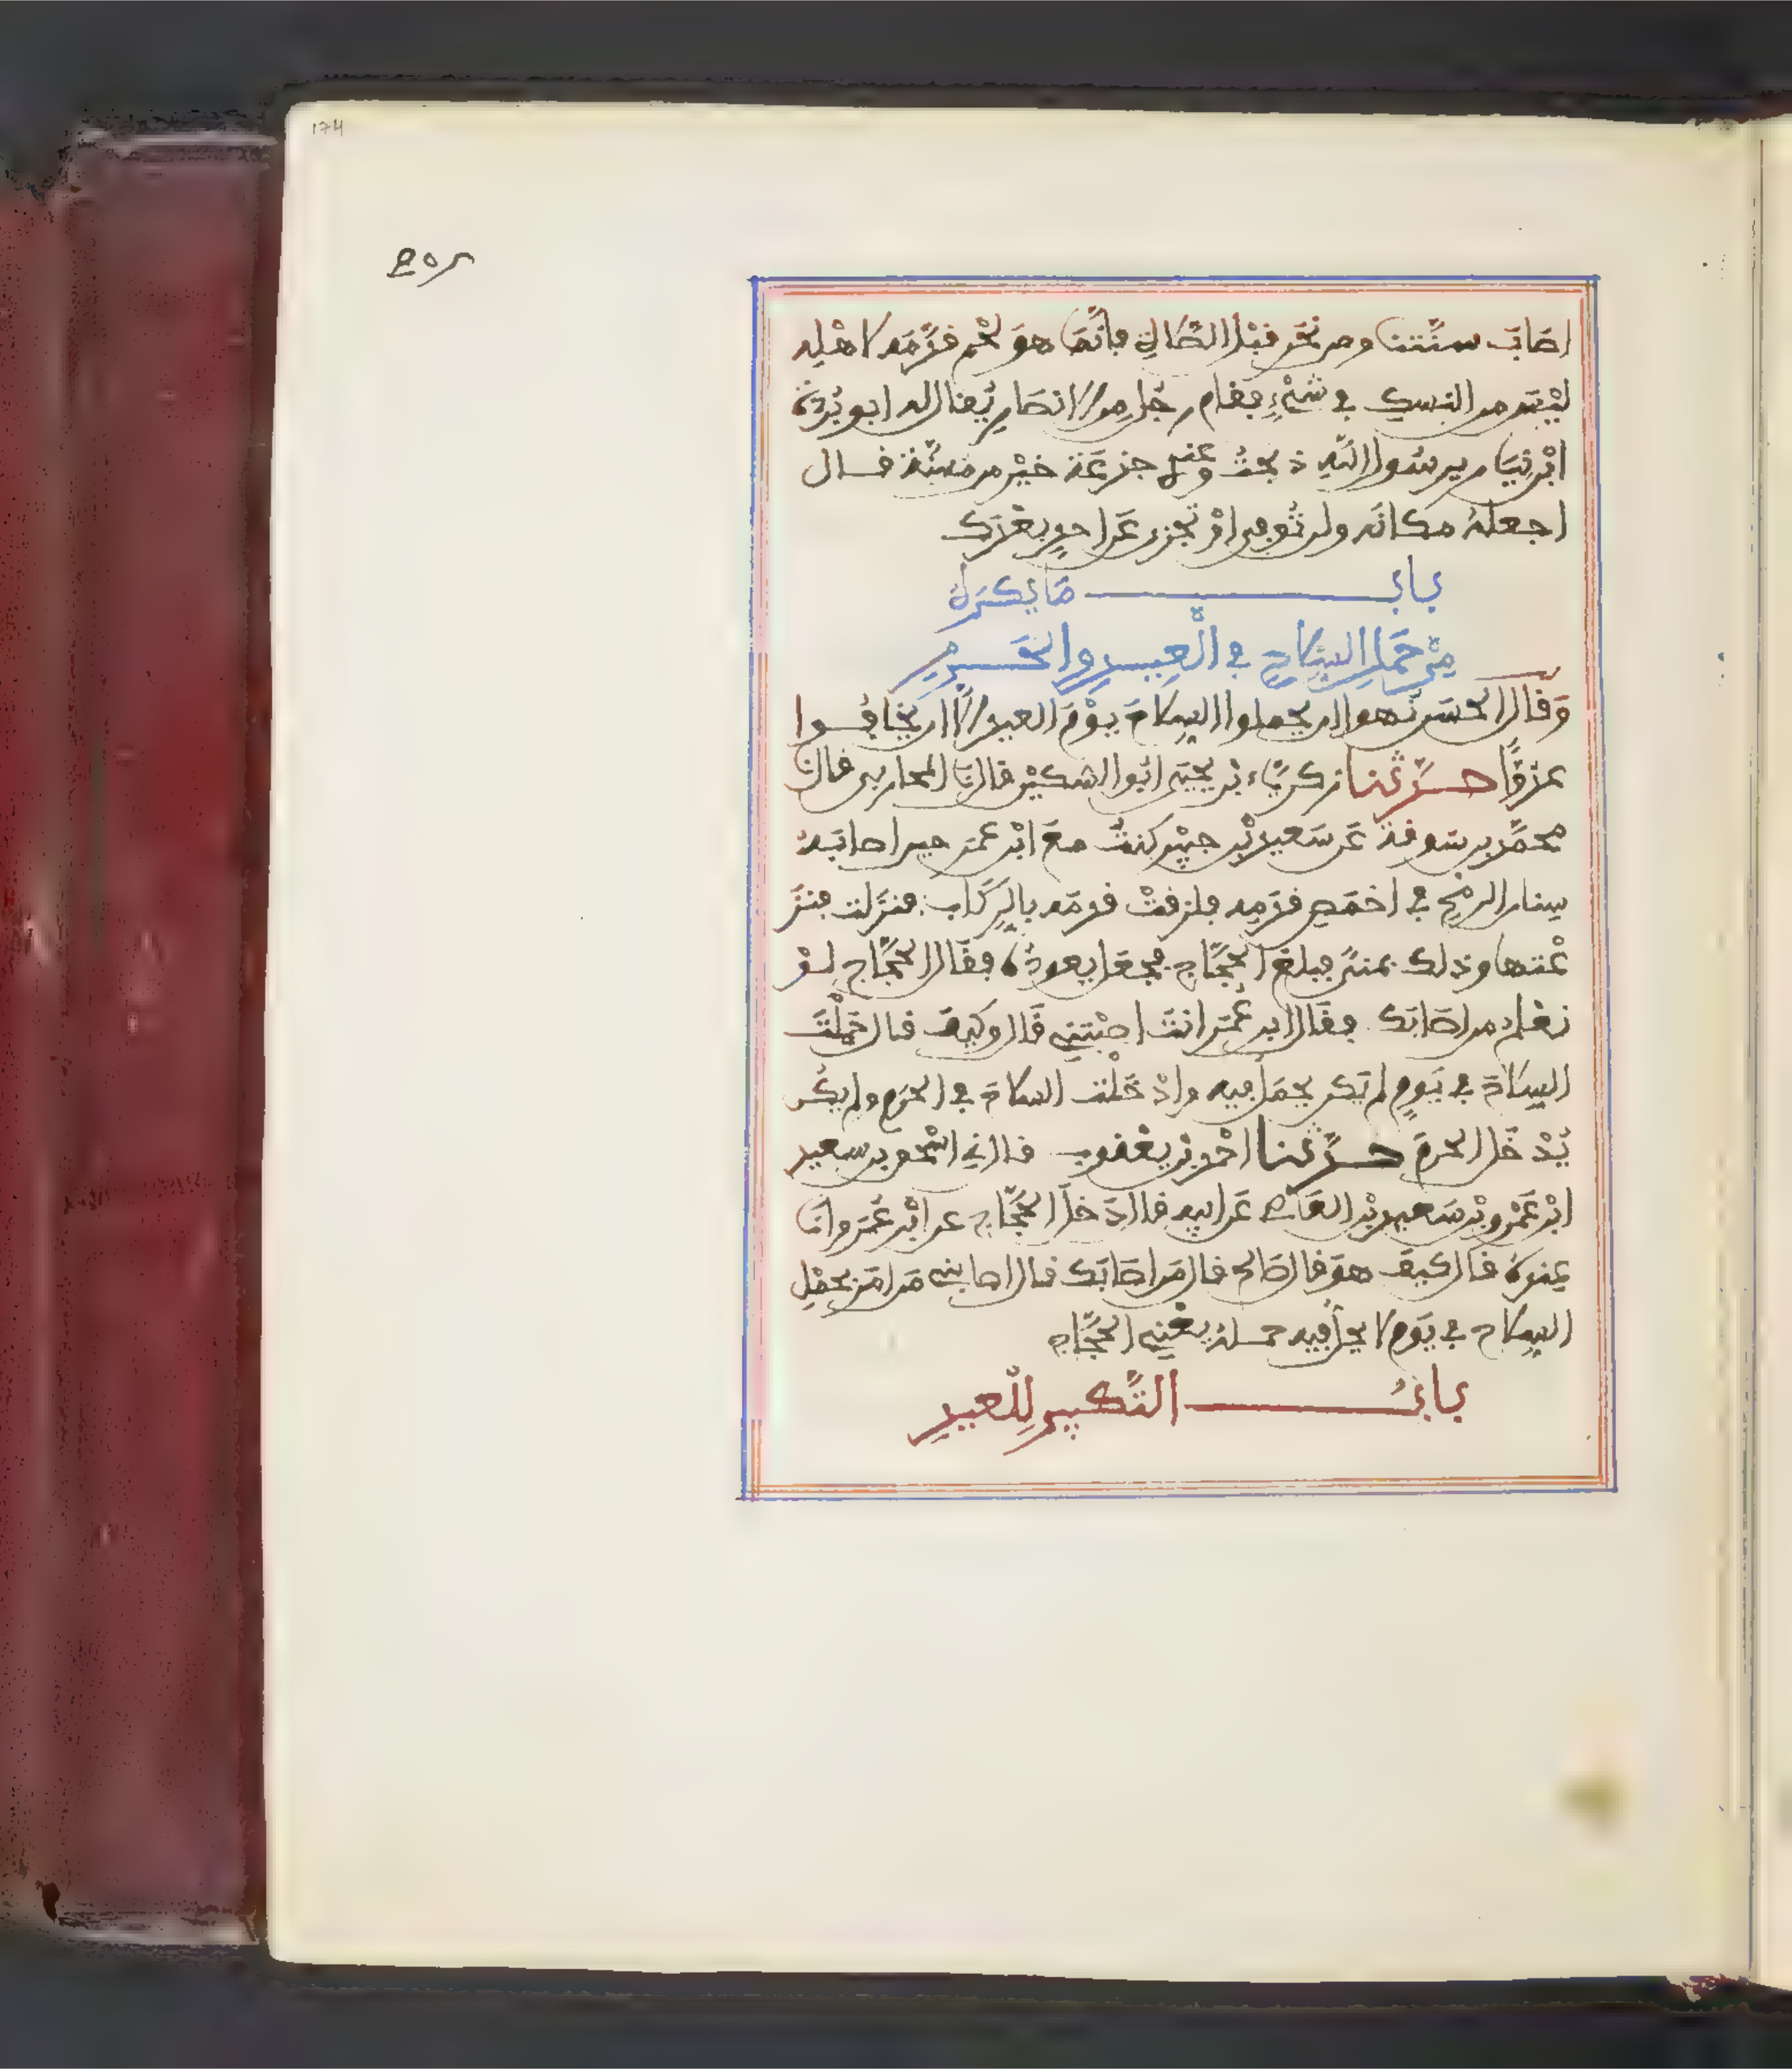 174
اصَابَ سنّتنا ومن نحر قبل الصّلاةِ فإنّمَا هوَ لحْم قدَّمَه لاهْلِه
ليْسَ من النسك في شيْءٍ فقام رجُل من الانصارِ يُقال له ابو بُرْدة
ابْن نِيَار يرسُول اللّهِ ذبحتُ وعندي جذعَة خيْر من مسنّة قال
اجعلهُ مكانه ولن تُوفي او تجزي عَن احدٍ بعْدَك
بابُ مَا يكرَهُ
مِنْ حَمْلِ السِّلاحِ في الْعِيدِ والحَرمِ
وَقال الحسَن نُهوا ان يحملوا السِلاحَ يوْمَ العيد الا ان يخافُوا
عدوًّا حدّثنا زكريّاء بْن يحْيَى ابُو السّكيْن قال نَا المحاربي قال نا
محمّد بن سوقة عَن سَعيد بْن جبيْر كنتُ معَ ابْن عمَر حين اصَابَهُ
سِنان الرمْحِ في اخمَصِ قدَمِه فلزقتْ قدمَه بالرِكَاب فنزَلت فنزَ
عْتها وذلك بمنىً فبلغ الحجّاج فجعَل يعودُه فقَال الحجّاج لوْ
نعْلم من اصَابَك فقَال ابن عُمَر انتَ اصبْتني قَال وكيفَ قال حَمَلْتَ
السِلاَحَ في يَومٍ لم يَكن يحمَل فيه وادْخَلْتَ السلاحَ في الحرَم ولم يكُن
يُدْخَل الحرَمَ حدّثنا احْمد بْن يعْقوب قال ني اسْحٰق بن سعيد
ابْن عَمْرو بْن سَعيد بْن العَاص عَن ابيهِ قال دَخلَ الحجّاج على ابْن عُمَر وانَا
عِندَهُ قال كيفَ هوَ قال صَالح قال مَن اصَابَك قال اصَابني مَن امَرَ بحمْلِ
السِلاح في يَوم لا يحل فيه حملهُ يعْني الحجّاج
بابُ التّكبير للْعيدِ